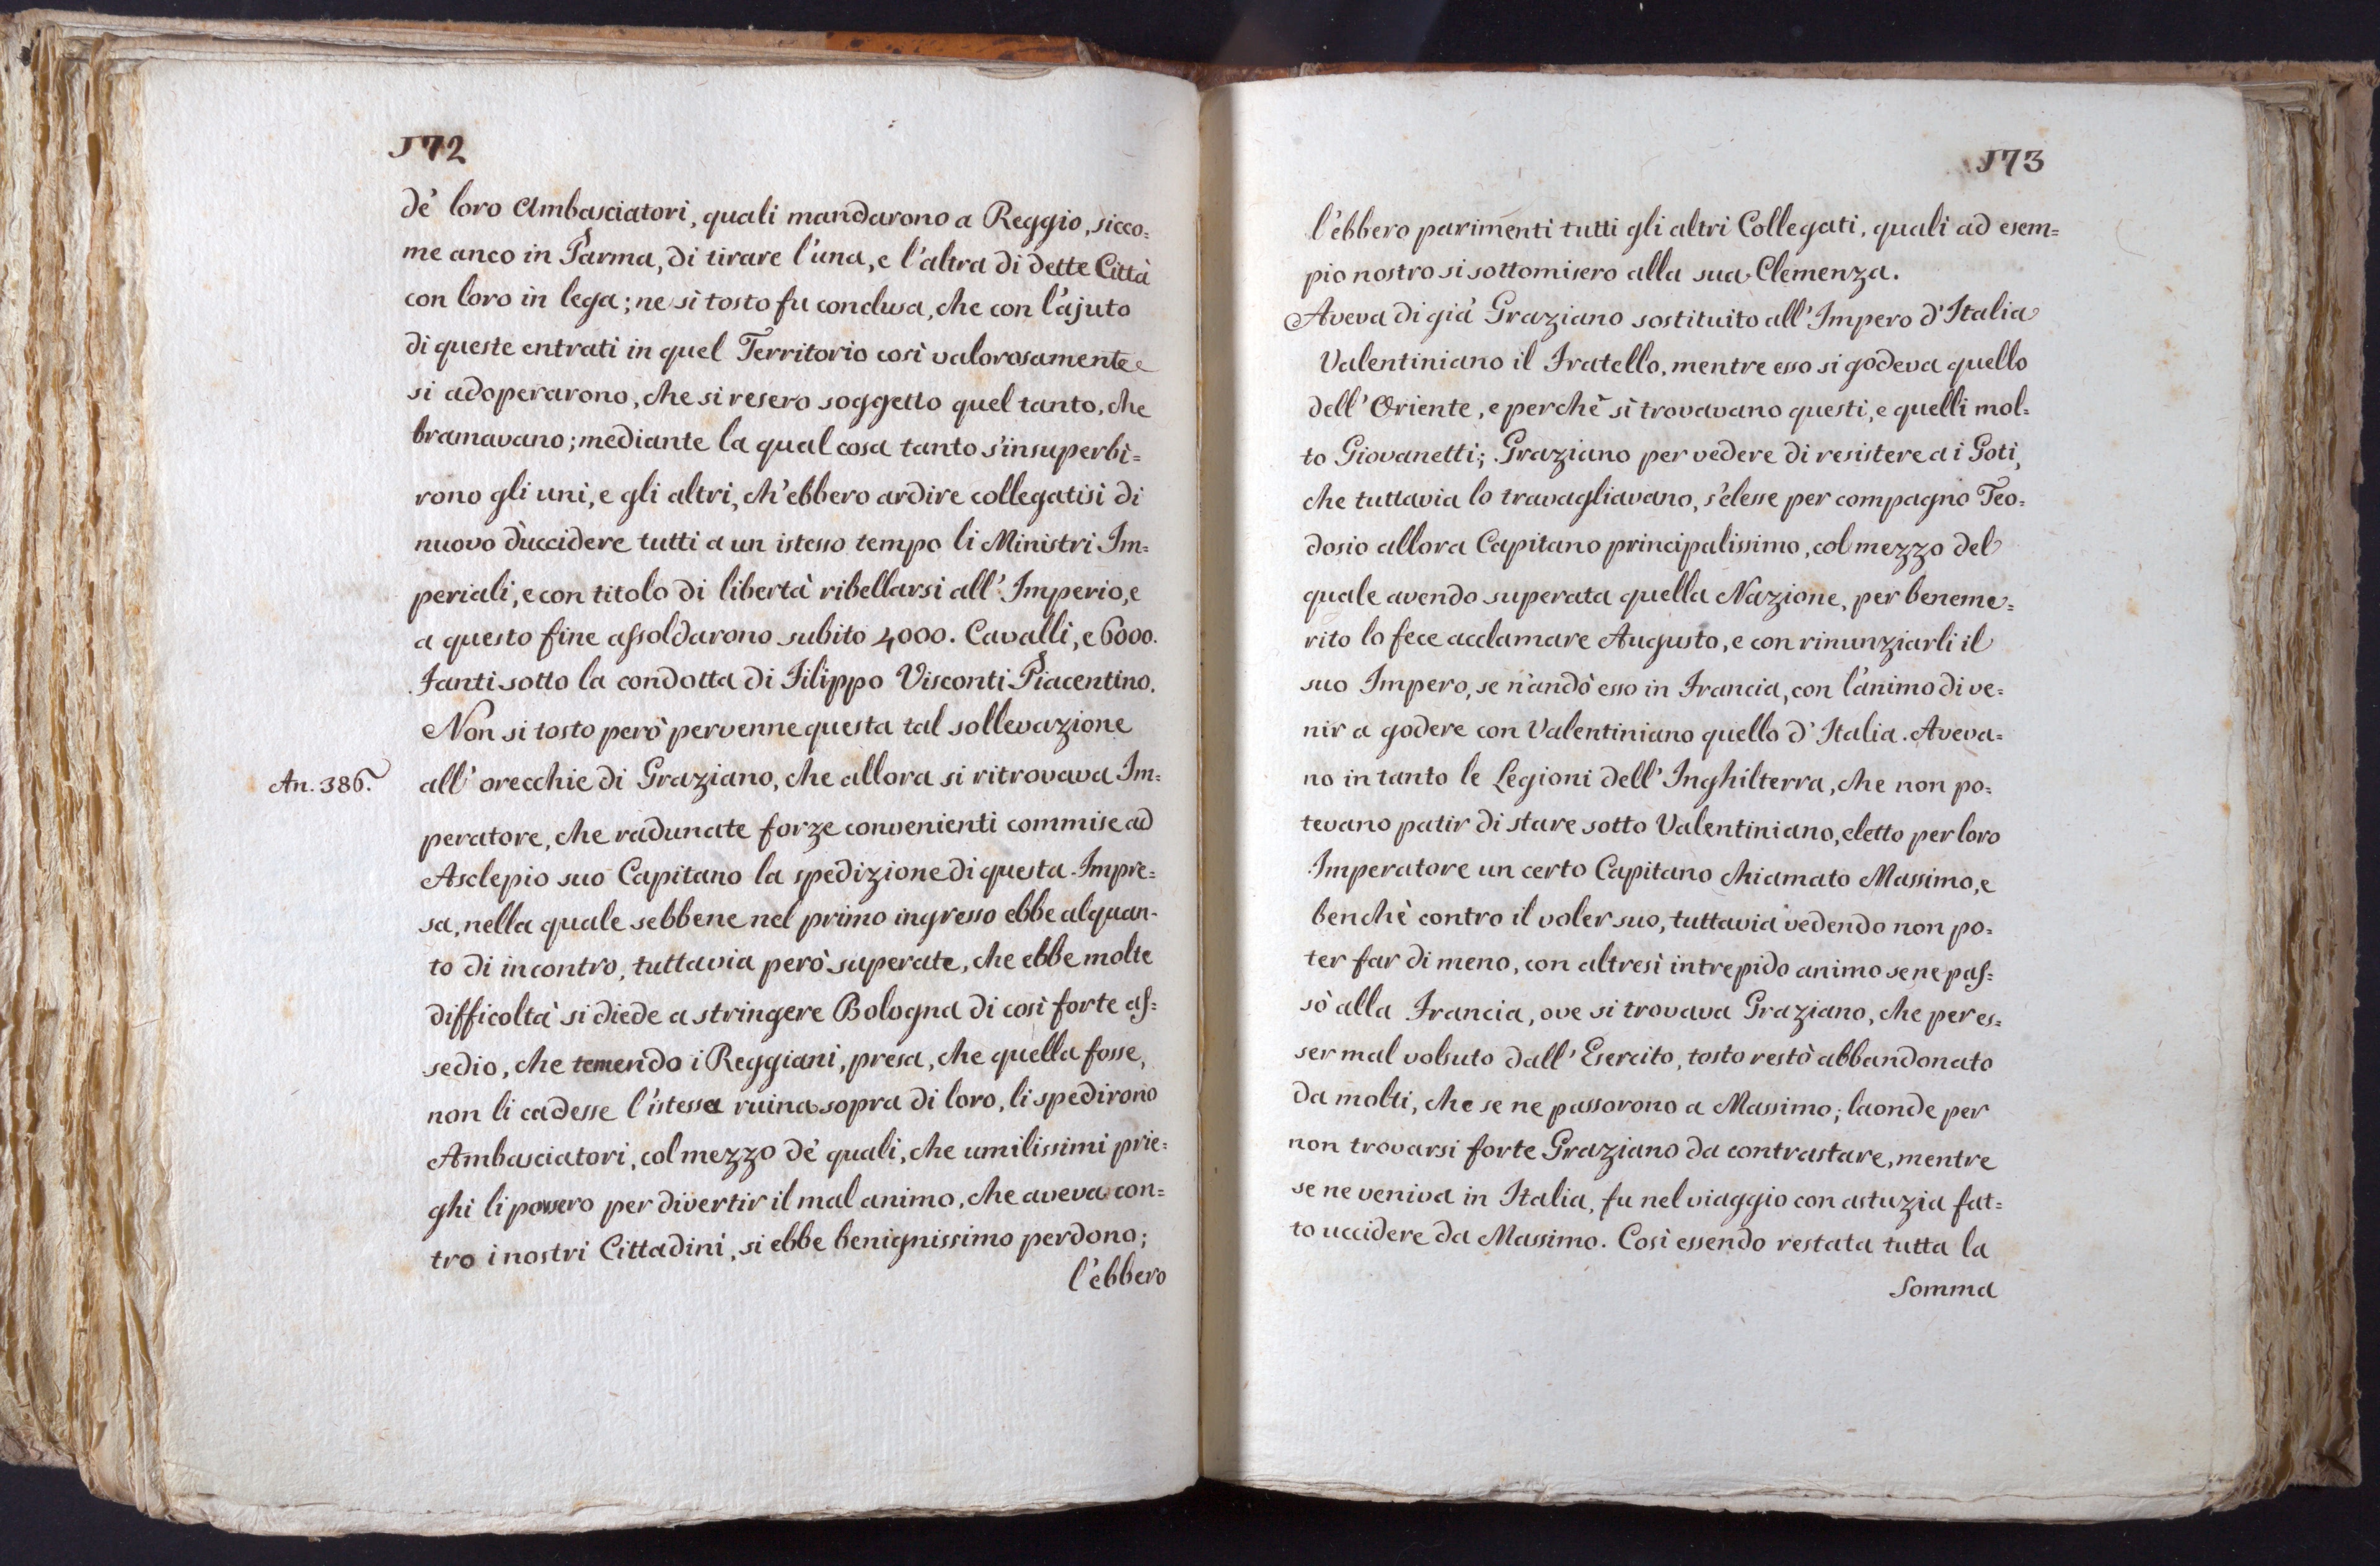 172
de' loro Ambasciatori, quali mandarono a Reggio, sicco=
me anco in Parma, di tirare l'una, e l'altra di dette Città
con loro in lega; ne sì tosto fu conclusa, che con l'ajuto
di queste entrati in quel Territorio così valorosamente
si adoperarono, che si resero soggetto quel tanto, che
bramavano; mediante la qual cosa tanto s'insuperbi=
rono gli uni, e gli altri, ch'ebbero ardire collegatisi di
nuovo d'uccidere tutti a un istesso tempo li Ministri Im=
periali, e con titolo di libertà ribellarsi all' Imperio, e
a questo fine assoldarono subito 4000. Cavalli, e 6000.
Fanti sotto la condotta di Filippo Visconti Piacentino.
Non si tosto però pervenne questa tal sollevazione
An. 386. all' orecchie di Graziano, che allora si ritrovava Im=
peratore, che radunate forze convenienti commise ad
Asclepio suo Capitano la spedizione di questa Impre=
sa, nella quale sebbene nel primo ingresso ebbe alquan-
to di incontro, tuttavia però superate, che ebbe molte
difficoltà si diede a stringere Bologna di così forte as=
sedio, che temendo i Reggiani, presa, che quella fosse,
non li cadesse l'istessa ruina sopra di loro, li spedirono
Ambasciatori, col mezzo de' quali, che umilissimi prie=
ghi li porsero per divertir il mal animo, che aveva con=
tro i nostri Cittadini, si ebbe benignissimo perdono;
l'ebbero
173
l'ebbero parimenti tutti gli altri Collegati, quali ad esem=
pio nostro si sottomisero alla sua Clemenza.
Aveva di già Graziano sostituito all' Impero d'Italia
Valentiniano il Fratello, mentre esso si godeva quello
dell' Oriente, e perchè si trovavano questi, e quelli mol=
to Giovanetti; Graziano per vedere di resistere a i Goti,
che tuttavia lo travagliavano, s'elesse per compagno Teo=
dosio allora Capitano principalissimo, col mezzo del
quale avendo superata quella Nazione, per beneme=
rito lo fece acclamare Augusto, e con rinunziarli il
suo Impero, se n'andò esso in Francia, con l'animo di ve=
nir a godere con Valentiniano quello d'Italia. Aveva=
no in tanto le Legioni dell' Inghilterra, che non po=
tevano patir di stare sotto Valentiniano, eletto per loro
Imperatore un certo Capitano chiamato Massimo, e
benchè contro il voler suo, tuttavia vedendo non po=
ter far di meno, con altresì intrepido animo se ne pas=
sò alla Francia, ove si trovava Graziano, che per es=
ser mal volsuto dall' Esercito, tosto restò abbandonato
da molti, che se ne passorono a Massimo; laonde per
non trovarsi forte Graziano da contrastare, mentre
se ne veniva in Italia, fu nel viaggio con astuzia fat=
to uccidere da Massimo. Così essendo restata tutta la
Somma